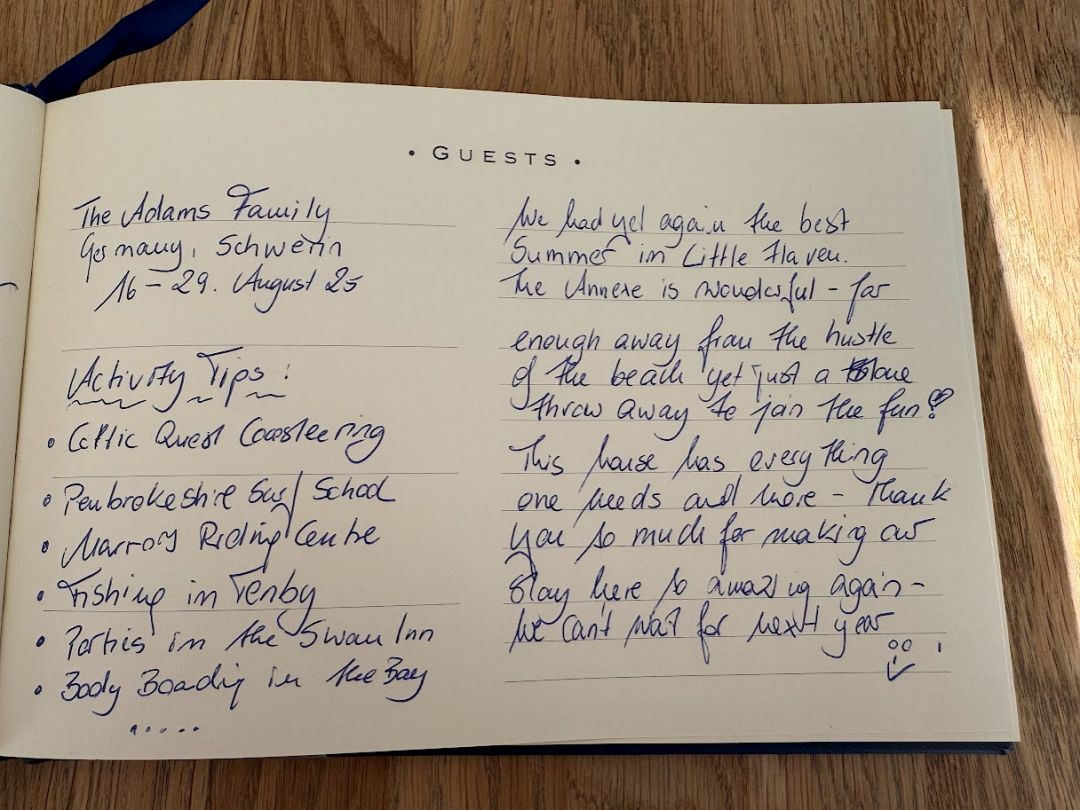 • GUESTS •
The Adams Family
Germany, Schwerin
16 – 29. August 25
Activity Tips:
• Celtic Quest Coasteering
• Pembrokeshire Surf School
• Marros Riding Centre
• Fishing in Tenby
• Parties in the Swan Inn
• Body Boarding in the Bay
.....
We had yet again the best
Summer in Little Haven.
The Annexe is wonderful – far
enough away from the hustle
of the beach yet just a stone
throw away to join the fun!
This house has everything
one needs and more – thank
you so much for making our
stay here so amazing again –
We can't wait for next year